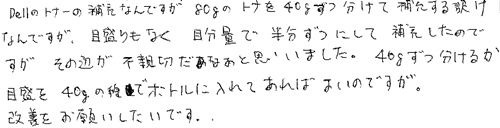 Dellのトナーの補充なんですが 80gのトナを40gずつ分けて補充する訳け
なんですが、目盛りもなく 目分量で半分ずつにして補充したので
すが その辺が不親切だなあと思いいました。40gずつ分けるか
目盛を40gの線でボトルに入れてあればよいのですが。
改善をお願いしたいです。.